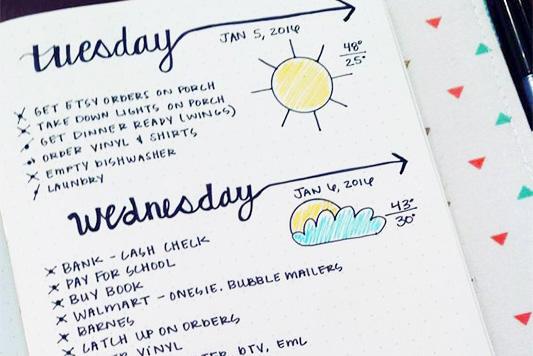 tuesday
JAN 5, 2016
48°
25°
GET ETSY ORDERS ON PORCH
TAKE DOWN LIGHTS ON PORCH
GET DINNER READY (WINGS)
ORDER VINYL & SHIRTS
EMPTY DISHWASHER
LAUNDRY
wednesday
JAN 6, 2016
43°
30°
BANK - CASH CHECK
PAY FOR SCHOOL
BUY BOOK
WALMART - ONESIE, BUBBLE MAILERS
BARNES
CATCH UP ON ORDERS
VINYL
DTV, EML